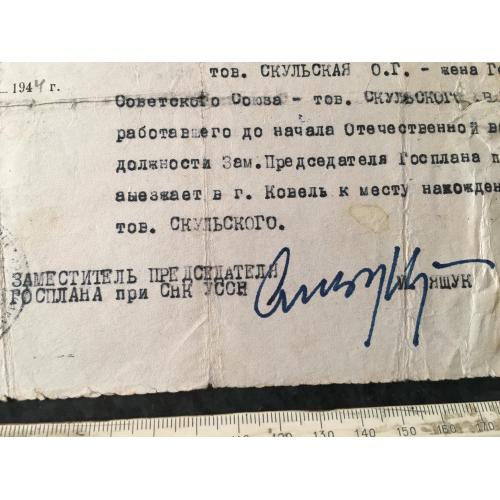 1944 г.
тов. СКУЛЬСКАЯ О.Г. - жена Ге
Советского Союза - тов. СКУЛЬСКОГО
работавшего до начала Отечественной во
должности Зам.Председателя Госплана п
аыезжает в г. Ковель к месту нахожден
тов. СКУЛЬСКОГО.
ЗАМЕСТИТЕЛЬ ПРЕДСЕДАТЕЛЯ
ГОСПЛАНА при СНК УССР
ЯЩУК
110 120 130 140 150 160 170